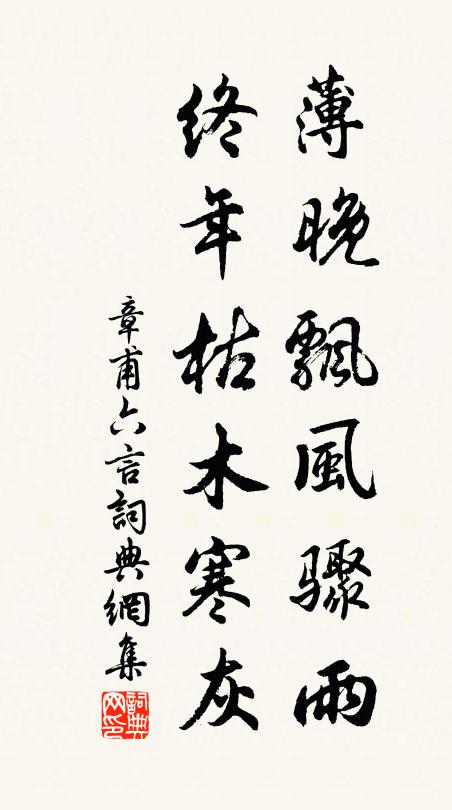 薄晚飄風驟雨
終年枯木寒灰
章甫六言詞典網集
詞典網印